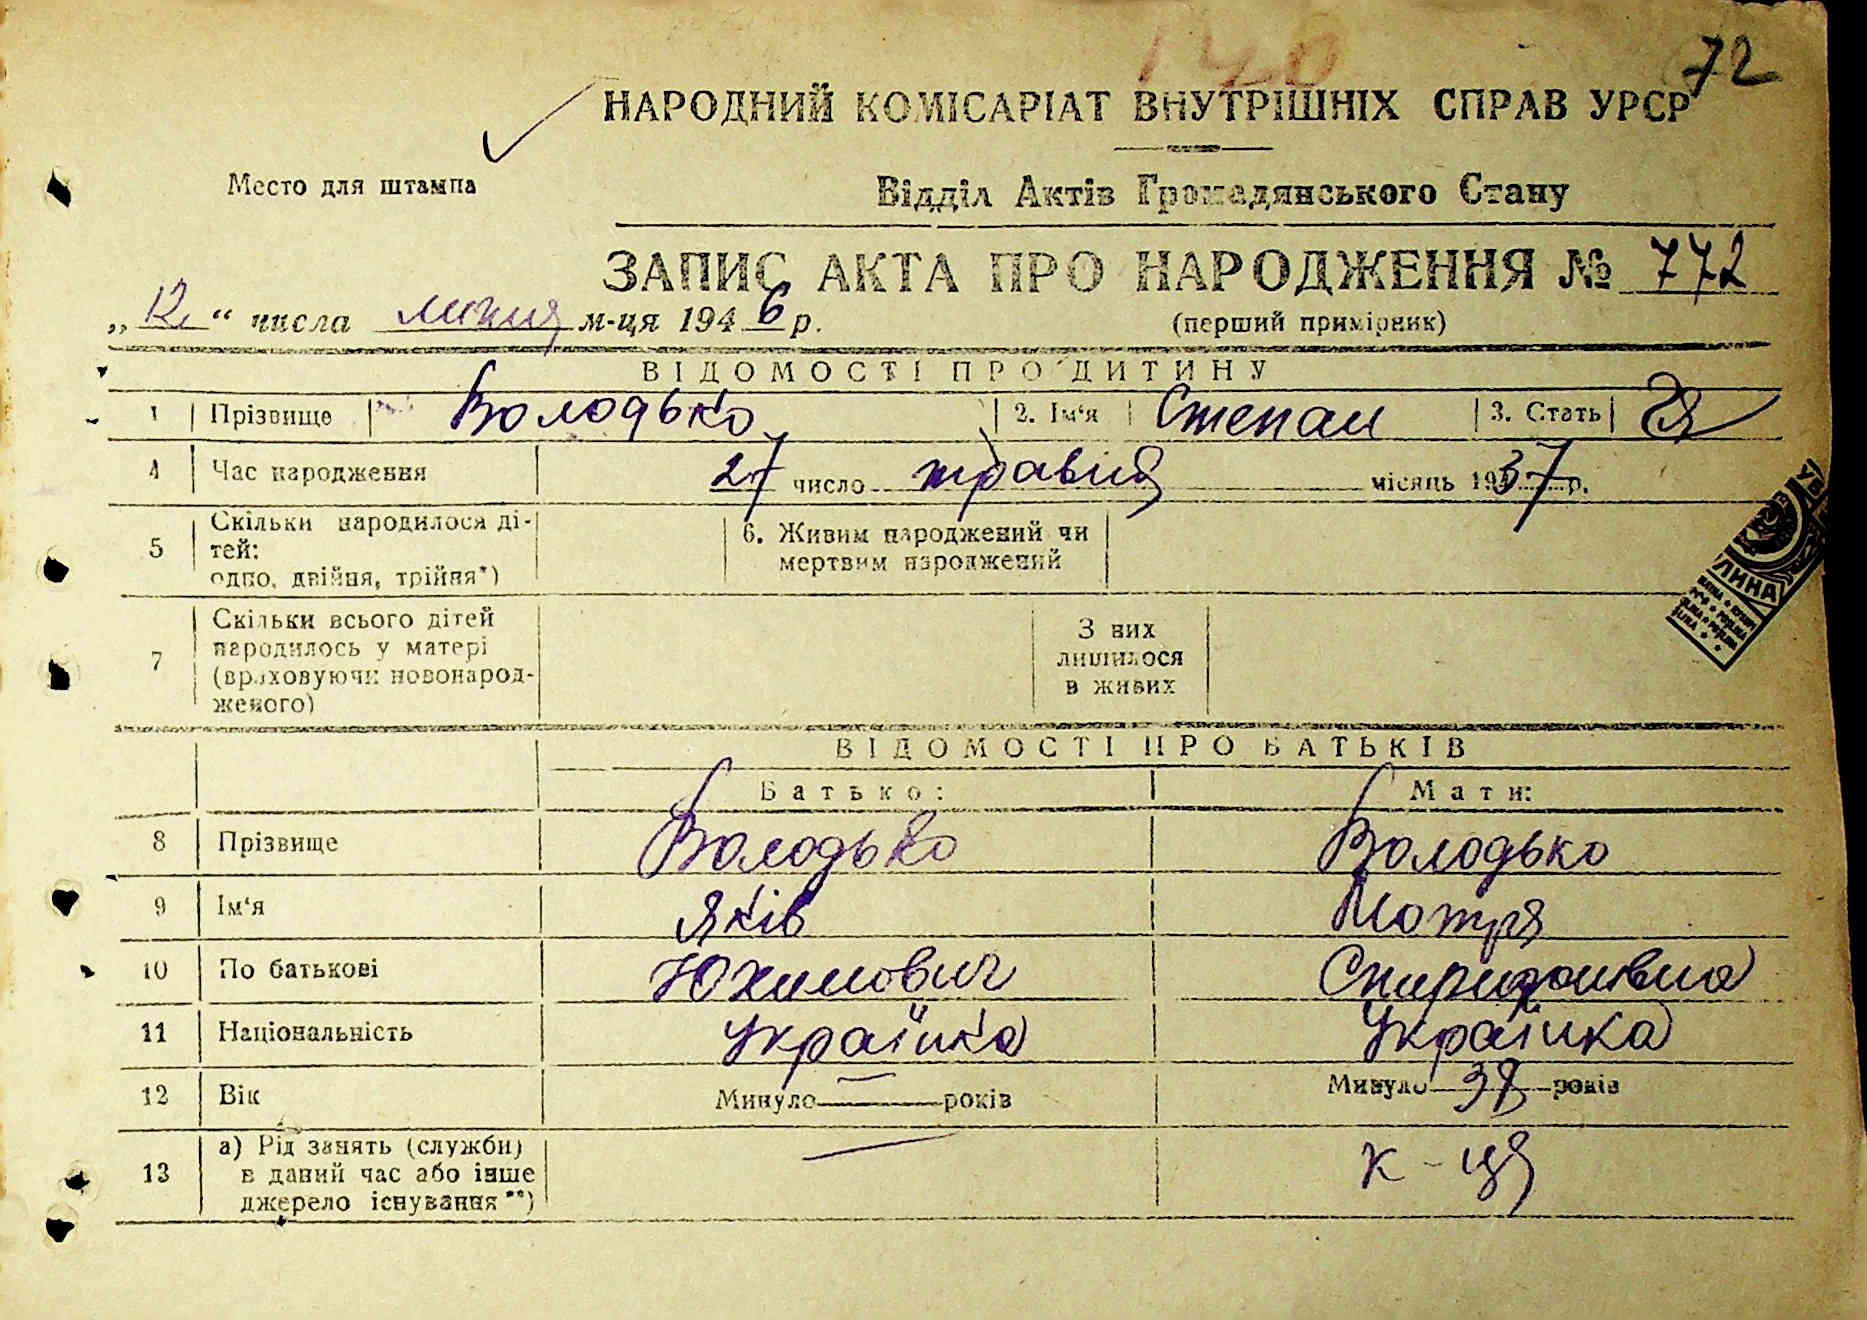 140
72
НАРОДНИЙ КОМІСАРІАТ ВНУТРІШНІХ СПРАВ УРСР
Место для штампа
Відділ Актів Громадянського Стану
ЗАПИС АКТА ПРО НАРОДЖЕННЯ № 772
„12“ числа липня м-ця 1946 р.
(перший примірник)
ВІДОМОСТІ ПРО ДИТИНУ
1 Прізвище Володько 2. Ім'я Степан 3. Стать
4 Час народження 27 число травня місяць 1937 р.
5 Скільки народилося ді-
тей:
одно, двійня, трійня*)
6. Живим народжений чи
мертвим народжений
7 Скільки всього дітей
народилось у матері
(враховуючи новонарод-
женого)
З них
лишилося
в живих
ВІДОМОСТІ ПРО БАТЬКІВ
Батько: Мати:
8 Прізвище Володько Володько
9 Ім'я Яків Мотря
10 По батькові Юхимович Спиридонівна
11 Національність Українка Українка
12 Вік Минуло — років Минуло 38 років
13 а) Рід занять (служби)
в даний час або інше
джерело існування**)
— к-ця
ЛИНА